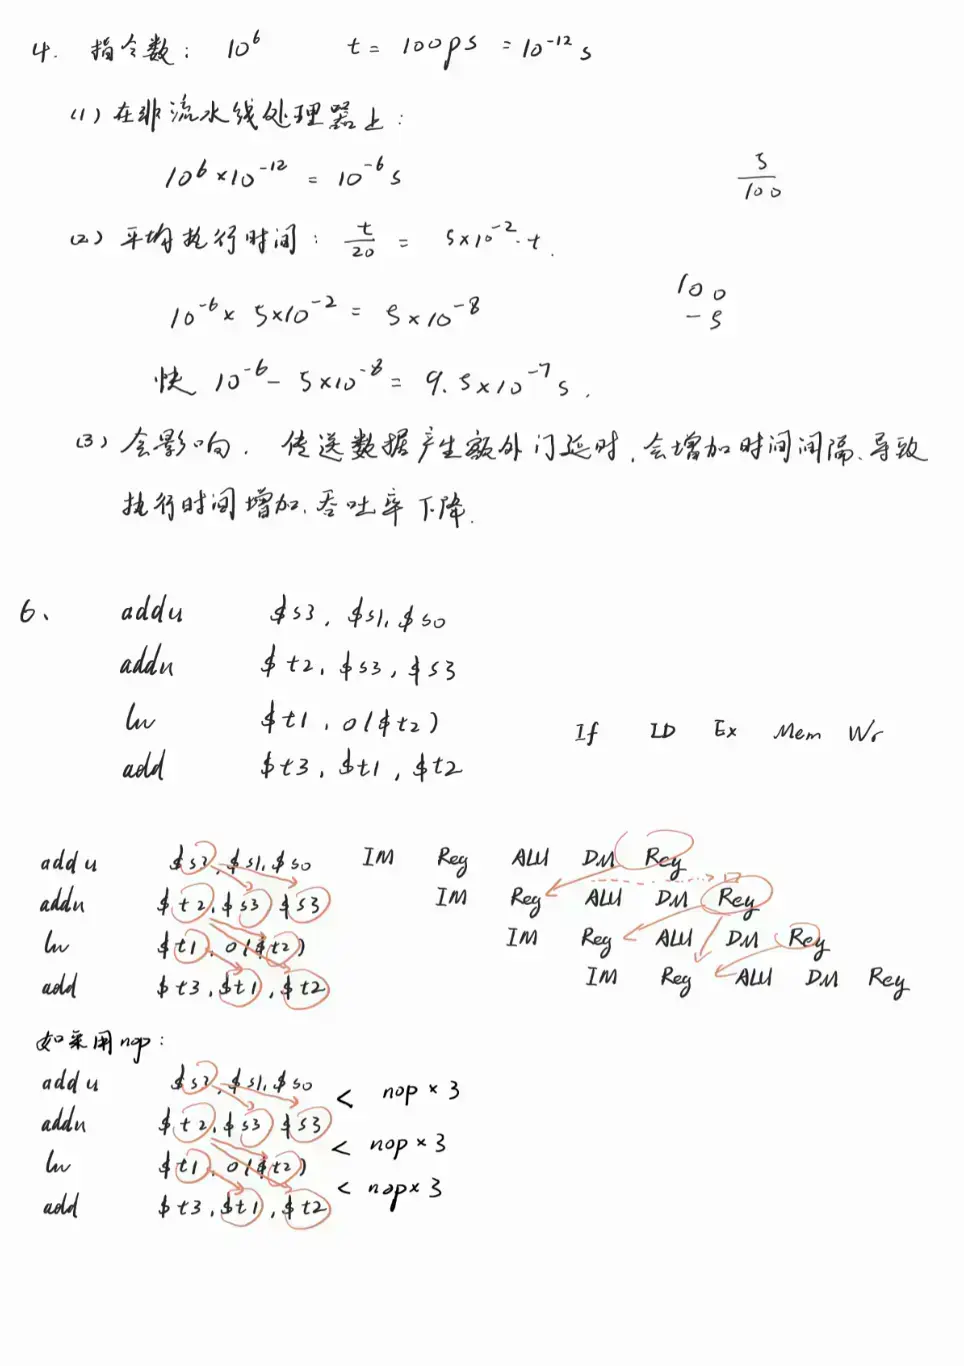 4. 指令数: 10⁶ t = 100ps = 10⁻¹² s
(1) 在非流水线处理器上:
10⁶×10⁻¹² = 10⁻⁶ s
5/100
(2) 平均执行时间: t/20 = 5×10⁻²·t.
100
-5
10⁻⁶ × 5×10⁻² = 5×10⁻⁸
快 10⁻⁶ - 5×10⁻⁸ = 9.5×10⁻⁷ s.
(3) 会影响. 传送数据产生额外门延时, 会增加时间间隔、导致
执行时间增加、吞吐率下降.
6、 addu $s3, $s1, $s0
addu $t2, $s3, $s3
lw $t1, 0($t2)
If ID Ex Mem Wr
add $t3, $t1, $t2
addu $s3, $s1, $s0 IM Reg ALU DM Reg
addu $t2, $s3 $s3 IM Reg ALU DM Reg
lw $t1, 0($t2) IM Reg ALU DM Reg
add $t3, $t1, $t2 IM Reg ALU DM Reg
如采用nop:
addu $s3, $s1, $s0
< nop × 3
addu $t2, $s3 $s3
< nop × 3
lw $t1, 0($t2)
< nop × 3
add $t3, $t1, $t2